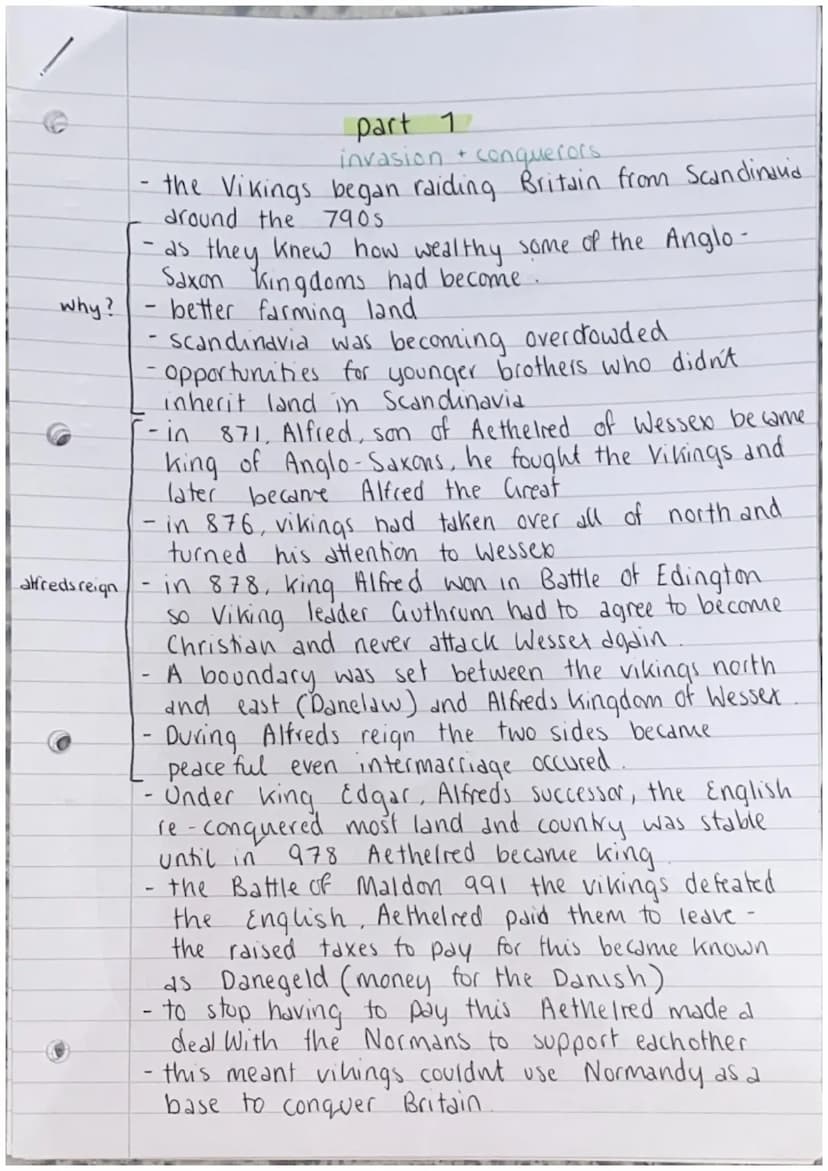 part 1
invasion + conquerors
- the Vikings began raiding Britain from Scandinavia
around the 790s
- as they knew how wealthy some of the Anglo-
Saxon Kingdoms had become.
why?
- better farming land
- scandinavia was becoming overcrowded
- opportunities for younger brothers who didn't
inherit land in Scandinavia
- in 871, Alfred, son of Aethelred of Wessex became
King of Anglo-Saxons, he fought the Vikings and
later became Alfred the Great
- in 876, vikings had taken over all of north and
turned his attention to Wessex
alfreds reign
- in 878, King Alfred won in Battle of Edington
so Viking leader Guthrum had to agree to become
Christian and never attack Wessex again.
- A boundary was set between the vikings north
and east (Danelaw) and Alfreds kingdom of Wessex.
- During Alfreds reign the two sides became
peaceful even intermarriage occured.
- Under king Edgar, Alfreds successor, the English
re-conquered most land and country was stable
until in 978 Aethelred became king
- the Battle of Maldon 991 the vikings defeated
the English, Aethelred paid them to leave -
the raised taxes to pay for this became known
as Danegeld (money for the Danish)
- to stop having to pay this Aethelred made a
deal With the Normans to support eachother
- this meant vikings couldnt use Normandy as a
base to conquer Britain.